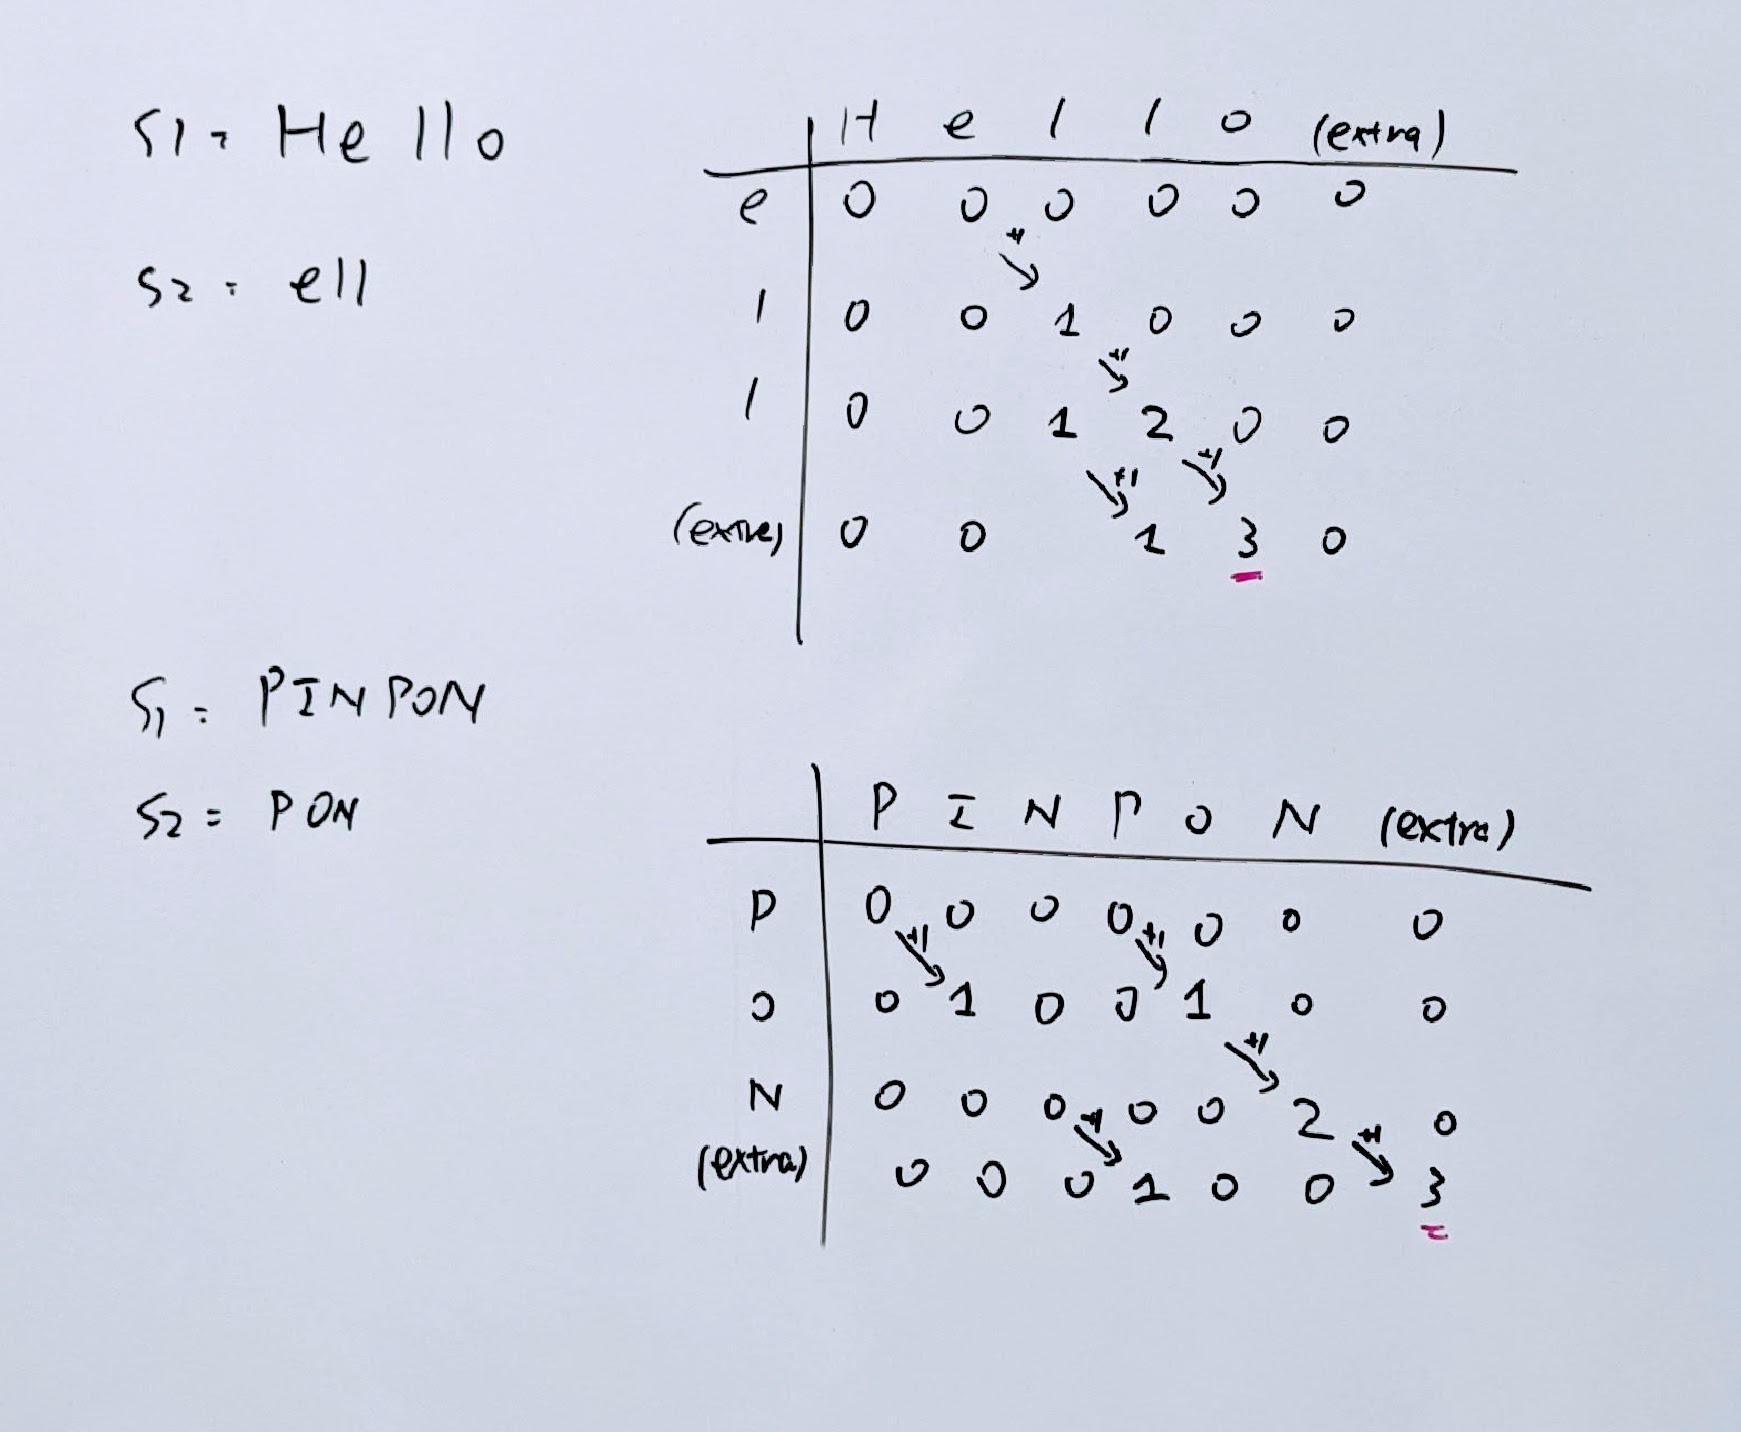 S1 = Hello
S2 = ell
H e l l o (extra)
e 0 0 0 0 0 0
+1
l 0 0 1 0 0 0
+1
l 0 0 1 2 0 0
+1 +1
(extra) 0 0 1 3 0
S1 = PINPON
S2 = PON
P I N P O N (extra)
P 0 0 0 0 0 0 0
+1 +1
O 0 1 0 0 1 0 0
+1
N 0 0 0 0 0 2 0
+1 +1
(extra) 0 0 0 1 0 0 3